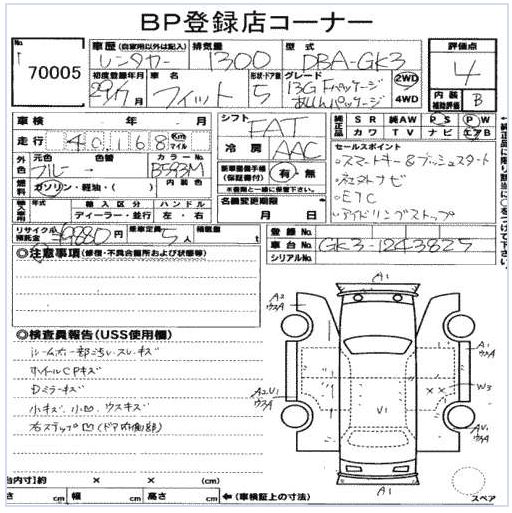 BP登録店コーナー
No. 70005
車歴 (自家用以外は記入) レンタカー 排気量 1300 型式 DBA-GK3 評価点 4
初度登録年月 29年 月 車名 フィット 形状・ドア数 5 グレード 13G Fパッケージ 2WD 4WD 内装 補助評価 B
車検 年 月 シフト FAT 純正品 SR 純AW PS PW カワ TV ナビ エアB
走行 40,168 Km マイル 冷房 AAC
セールスポイント
外色 元色 ブルー 色替 カラーNo. B593M
・スマートキー&プッシュスタート
燃料 ガソリン・軽油・( ) 内装色 新車整備手帳 (保証書付) 有・無
※書類と一緒に保管下さい。
・社外ナビ
・ETC
・アイドリングストップ
輸入車用 年式 輸入区分 ハンドル
ディーラー・並行 左・右
名義変更期限 月 日
リサイクル預託金 9880円 乗車定員 5人 積載量 t
登録No.
車台No. GK3-1243825
シリアルNo.
◎注意事項 (修復・不具合箇所および状態等)
◎検査員報告(USS使用欄)
ルームホー部汚レ、スレ、キズ
ホイールCPキズ
Dミラーキズ
小キズ、小凹、ウスキズ
右ステップ凹(ドア内側部)
A1
A2 ウスA
A1 ウスA
A2 U1 ウスA
U1
××
W3
AU1 ウスA
A1
スペア
台内寸)約 × ×
さ cm 幅 cm 高さ cm ←(車検証上の寸法)